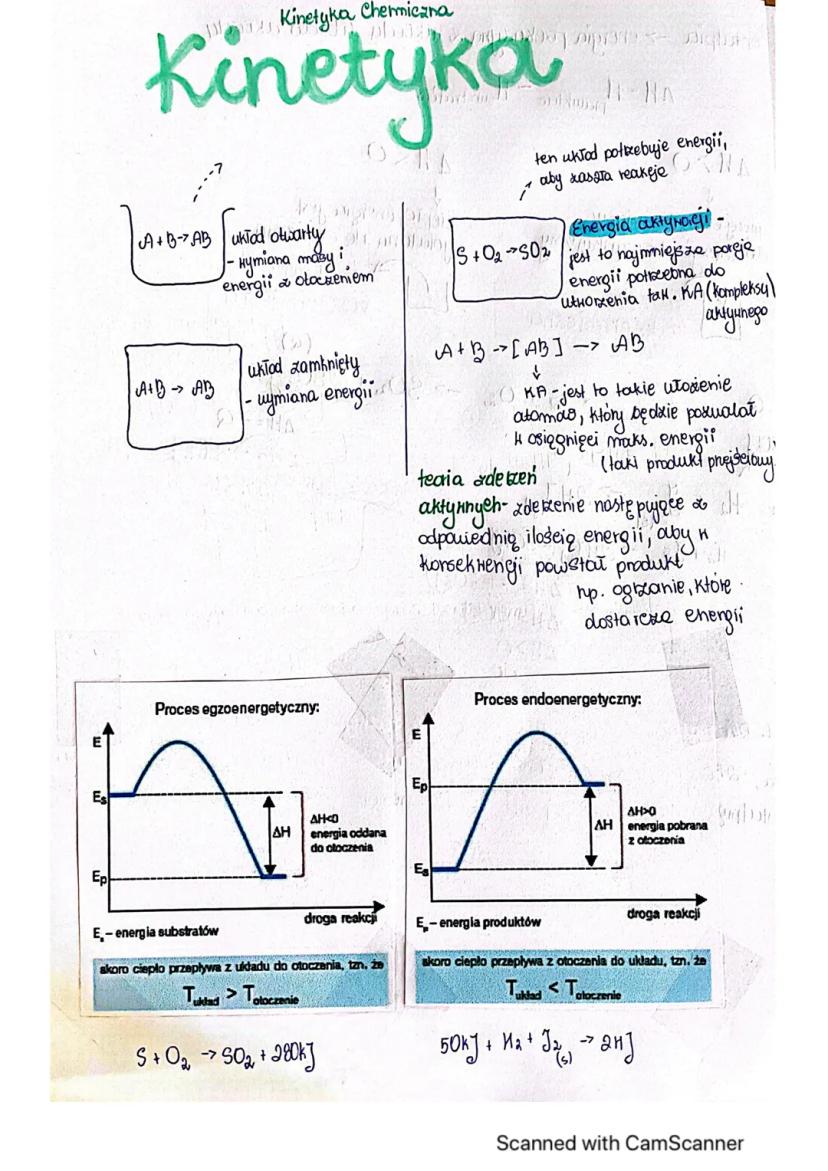 Kinetyka Chemiczna
Kinetyka
A+B→AB
układ otwarty
- wymiana masy i
energii z otoczeniem
A+B → AB
układ zamknięty
- wymiana energii
ten układ potrzebuje energii,
aby zaszła reakcja
S+O₂→SO₂
Energia aktywacji -
jest to najmniejsza porcja
energii potrzebna do
utworzenia tzw. KA (kompleksu)
aktywnego
A+B→[AB]→ AB
KA - jest to takie ułożenie
atomów, który będzie pozwalał
w osiągnięci maks. energii
(taki produkt przejściowy
teoria zderzeń
aktywnych- zderzenie następujące z
odpowiednią ilością energii, aby w
konsekwencji powstał produkt
np. ogrzanie, które
dostarcza energii
Proces egzoenergetyczny:
E
Es
ΔH
ΔH<0
energia oddana
do otoczenia
Ep
droga reakcji
Es – energia substratów
skoro ciepło przepływa z układu do otoczenia, tzn. że
Tukład > Totoczenie
S + O₂ → SO₂ + 280kJ
Proces endoenergetyczny:
E
Ep
ΔH
ΔH>0
energia pobrana
z otoczenia
Es
droga reakcji
Ep – energia produktów
skoro ciepło przepływa z otoczenia do układu, tzn. że
Tukład < Totoczenie
50kJ + H₂ + J₂(s) → 2HJ
Scanned with CamScanner